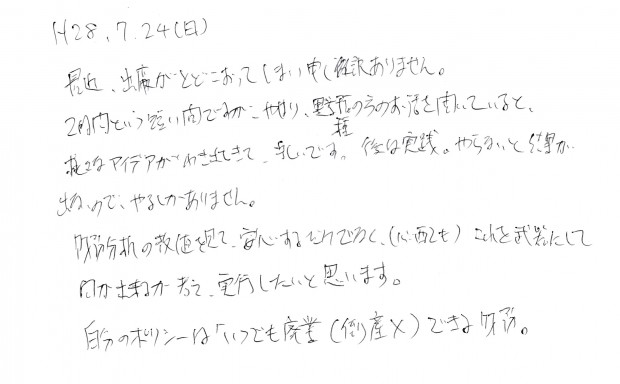 H28.7.24(日)
最近、出席がとどこおってしまい申し訳ありません。
2時間という短い間ですが、やはり、異業種の方のお話を聞いていると、
様々なアイデアがわき出てきて、楽しいです。後は実践。やらないと結果が
出ないので、やるしかありません。
財務分析の数値を見て、安心するだけでなく、(心配も)これを武器にして
何が出来るか考えて、実行したいと思います。
自分のポリシーは「いつでも廃業(倒産×)できる財務。